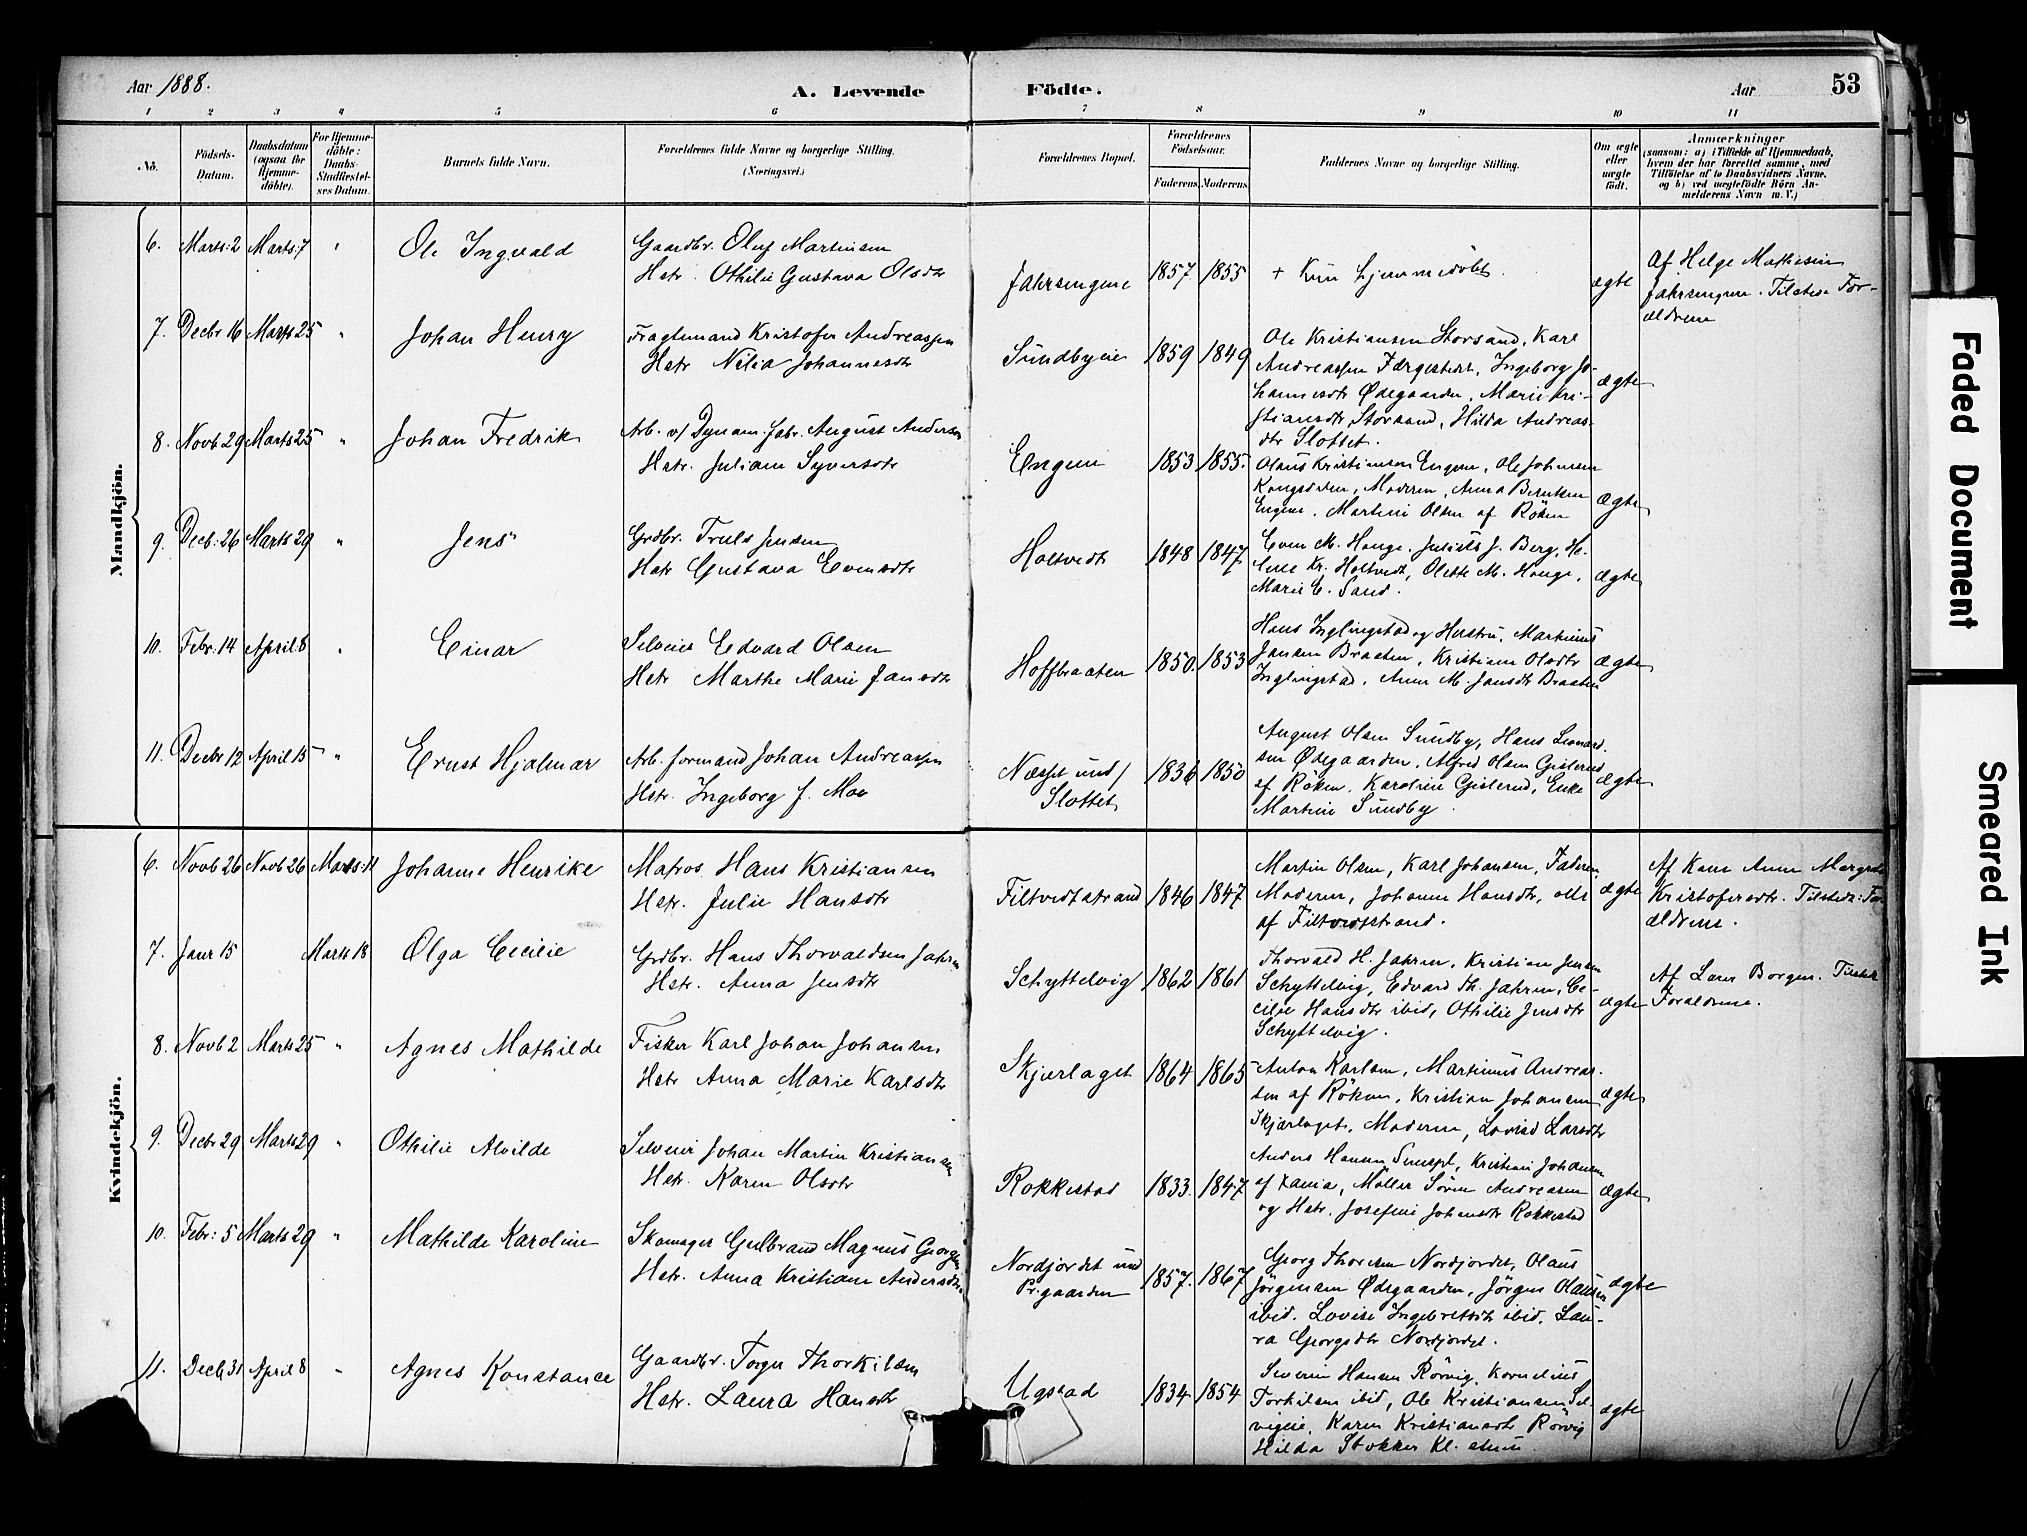 Aar 1888.
A. Levende
Födte.
Aar
53
1 2 3 4 5 6 7 8 9 10 11
No.
Födsels-Datum.
Daabsdatum (ogsaa for Hjemme-döbte).
For Hjemme-döbte: Daabs-Stadfæstel-ses Datum.
Barnets fulde Navn.
Forældrenes fulde Navne og borgerlige Stilling. (Næringsvei.)
Forældrenes Bopæl.
Forældrenes Födselsaar.
Faderens Moderens
Faddernes Navne og borgerlige Stilling.
Om ægte eller uægte födt.
Anmærkninger
(saasom: a) i Tilfælde af Hjemmedaab, hvem der har forrettet samme, med Tilföielse af to Daabsvidners Navne, og b) ved uægtefödte Börn An-melderens Navn m. V.)
Mandkjön.
6. Marts: 2 Marts: 7 " Ole Ingvald
Gaardbr. Oluf Martinsen
Hstr. Othilie Gustava Olsdtr
Jahrsengene 1857 1855
+ Kun hjemmedöbt.
ægte
Af Helge Mathisen
Jahrsengene. Tilstede For-
ældrene
7. Decbr 16 Marts 25 " Johan Henry
Fragtemand Kristofer Andreassen
Hstr Nilia Johannesdtr
Sundbyeie 1859 1849
Ole Kristiansen Storsand, Karl
Andreassen Færgestedet, Ingeborg Jo-
hannesdtr Ødegaarden, Marie Kri-
stiansdtr Storsand, Hilda Andreas-
dtr Slottet.
ægte
8. Novb 29 Marts 25 " Johan Fredrik
Arb. v/ Dynam. fabr. August Andersen
Hstr. Juliane Syversdtr
Engene 1853 1855.
Olaus Kristiansen Engene, Ole Johansen
Kongsdelen, Moderen, Anna Berntsen
Engene. Martine Olsen af Röken
ægte
9. Decb: 26 Marts 29 " Jens
Grdbr. Truls Jensen
Hstr Gustava Evensdtr
Holtvedt 1848 1847
Even M. Hauge. Julius J. Berg, He-
lene Kr. Holtvedt, Olette M. Hauge,
Marie E. Sand.
ægte
10. Febr: 14 April: 8 " Einar
Selveier Edvard Olsen
Hstr Marthe Marie Jansdtr
Hoffbraaten 1850. 1853
Hans Inglingstad og Hustru, Martinius
Jansen Braaten, Kristiane Olsdtr
Inglingstad, Anne M. Jansdtr Braaten
ægte
11. Decbr 12 April 15 " Ernst Hjalmar
Arb. formand Johan Andreassen
Hstr. Ingeborg J. Moe
Næsset und/
Slottet 1836 1850
August Olsen Sundby, Hans Leonard-
sen Ødegaarden, Alfred Olsen Gislerud
af Röken, Karoline Gislerud, Enke
Martine Sundby
ægte
Kvindekjön.
6. Novb 26 Novb 26 Marts: 11 Johanne Henrike
Matros Hans Kristiansen
Hstr. Julie Hansdtr
Filtvedtstrand 1846 1847
Martin Olsen, Karl Johansen, Faderen,
Moderen, Johanne Hansdtr, alle
af Filtvedtstrand.
ægte
Af Kone Anne Margrete
Kristofersdtr. Tilstede: For-
ældrene.
7. Janr 15 Marts 18 Olga Cecilie
Grdbr. Hans Thorvaldsen Jahren
Hstr. Anna Jensdtr
Schyttelvig 1862 1861
Thorvald H. Jahren, Kristian Jensen
Schyttelvig, Edvard Th. Jahren, Ce-
cilie Hansdtr ibid, Othilie Jensdtr
Schyttelvig.
ægte
Af Lars Borgen. Tilstede
Forældrene.
8. Novb 2 Marts 25 " Agnes Mathilde
Fisker Karl Johan Johansen
Hstr Anna Marie Karlsdtr
Skjærlaget 1864 1865
Anton Karlsen, Martinius Andreas-
sen af Röken, Kristian Johansen
Skjærlaget, Moderen, Lovise Larsdtr
ægte
9. Decbr 29 Marts 29 " Othilie Alvilde
Selveier Johan Martin Kristiansen
Hstr. Karen Olsdtr
Rokkestad 1833. 1847
Anders Hansen, Kristian Johansen
Möller Sören Andreasen
og Hstr. Josefine Johansdtr Rokkestad
ægte
10. Febr: 5 Marts 29 " Mathilde Karoline
Skomager Gulbrand Magnus Georgsen
Hstr. Anna Kristiane Andersdtr
Nordjordet und
Pr.gaarden 1857. 1867
Georg Thoresen Nordjordet, Olaus
Jörgensen Ødegaarden, Jörgen Olausen
ibid. Lovise Ingebretsdtr ibid. Lau-
ra Georgsdtr Nordjordet.
ægte
11. Decb 31 April 8 " Agnes Konstance
Gaardbr. Torger Thorkilsen
Hstr. Laura Hansdtr
Ugstad 1834 1854
Severin Hansen Rörvig, Kornelius
Torkilsen ibid, Ole Kristiansen Sel-
vigeie, Karen Kristiansdtr Rörvig
Hilda Stokker
ægte
Faded Document
Smeared Ink